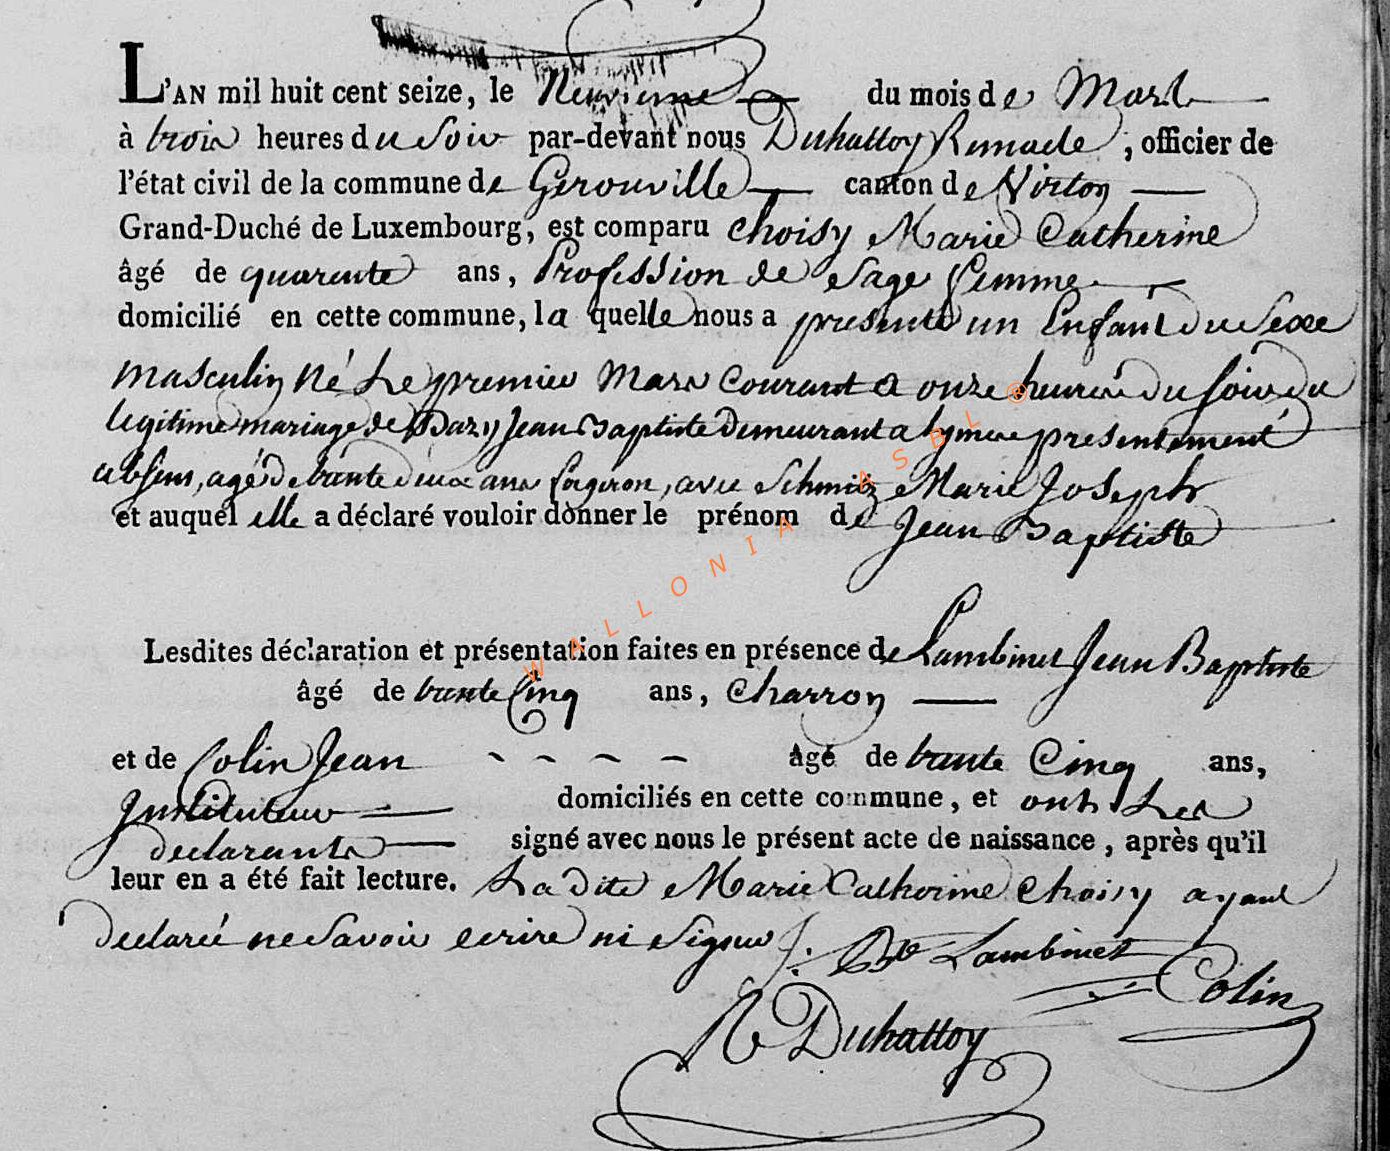 L'AN mil huit cent seize, le Neuvieme du mois de Mars
à trois heures du Soir par-devant nous Duhattoy Remacle, officier de
l'état civil de la commune de Gerouville canton de Virton
Grand-Duché de Luxembourg, est comparu Choisy Marie Catherine
âgé de quarente ans, Profession de Sage femme
domicilié en cette commune, la quelle nous a presenté un Enfant du Sexe
masculin né Le premier Mars Courant a onze heures du soir du
legitime mariage de Dazy Jean Baptiste demeurant a presentement
absens, agé de trante deux ans forgeron, avec Schmitz Marie Joseph
et auquel elle a déclaré vouloir donner le prénom de Jean Baptiste
Lesdites déclaration et présentation faites en présence de Lambinet Jean Baptiste
âgé de trante Cinq ans, Charron
et de Colin Jean âgé de trante Cinq ans,
Instituteur domiciliés en cette commune, et ont Les
declarants signé avec nous le présent acte de naissance, après qu'il
leur en a été fait lecture. La dite Marie Catherine Choisy ayant
declaré ne Savoir ecrire ni Signer J: Bte Lambinet
Colin
R Duhattoy
WALLONIA ASBL ®